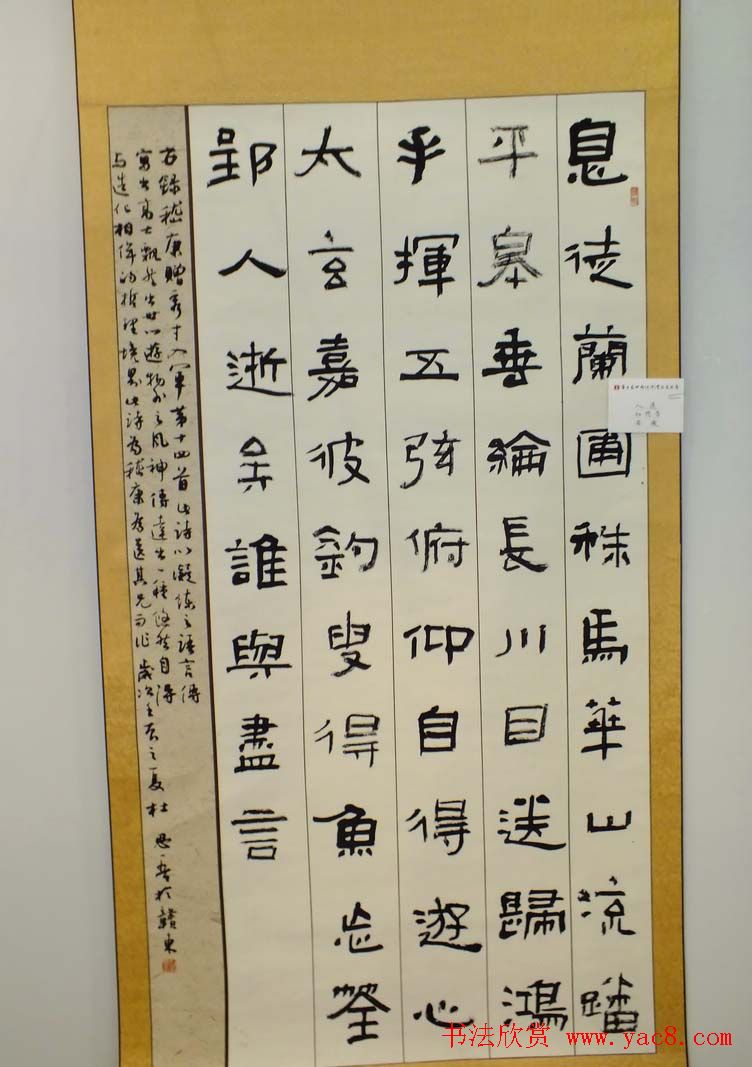 息徒蘭圃秣馬華山流磻
平皋垂綸長川目送歸鴻
手揮五弦俯仰自得遊心
太玄嘉彼釣叟得魚忘筌
郢人逝矣誰與盡言
右錄嵇康贈秀才入軍第十四首此诗以凝练之語言傳
寫出高士飘然出世心遊物外之风神傳達出一種悠然自得
与造化相侔的哲理境界此詩為嵇康為送其兄而作歲次壬辰之夏杜思 於贛東
书法欣赏 www.yac8.com